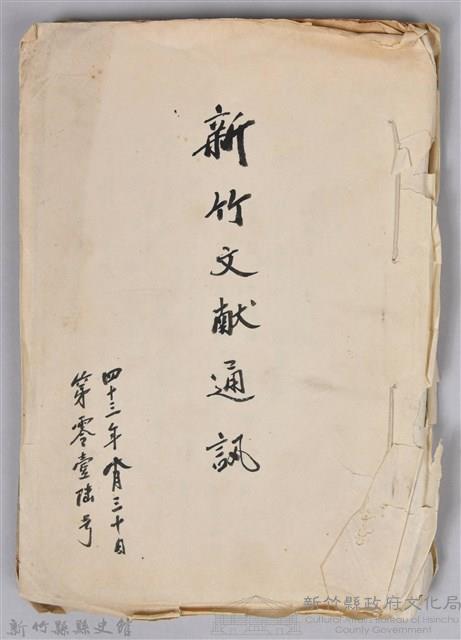 新竹文献通訊
四十三年六月三十日
第零壹陸号
新竹縣政府文化局
Cultural Affairs Bureau of Hsinchu
County Government
新竹縣縣史館